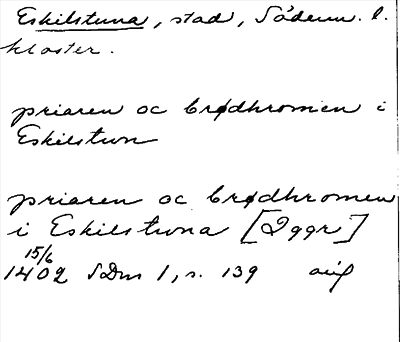 Eskilstuna, stad, Söderm. l.
kloster.
priaren oc brødhromen i
Eskilstwn
priaren oc brødhromen
i Eskilstuna [2ggr]
15/6
1402 SDns 1, s. 139 avs